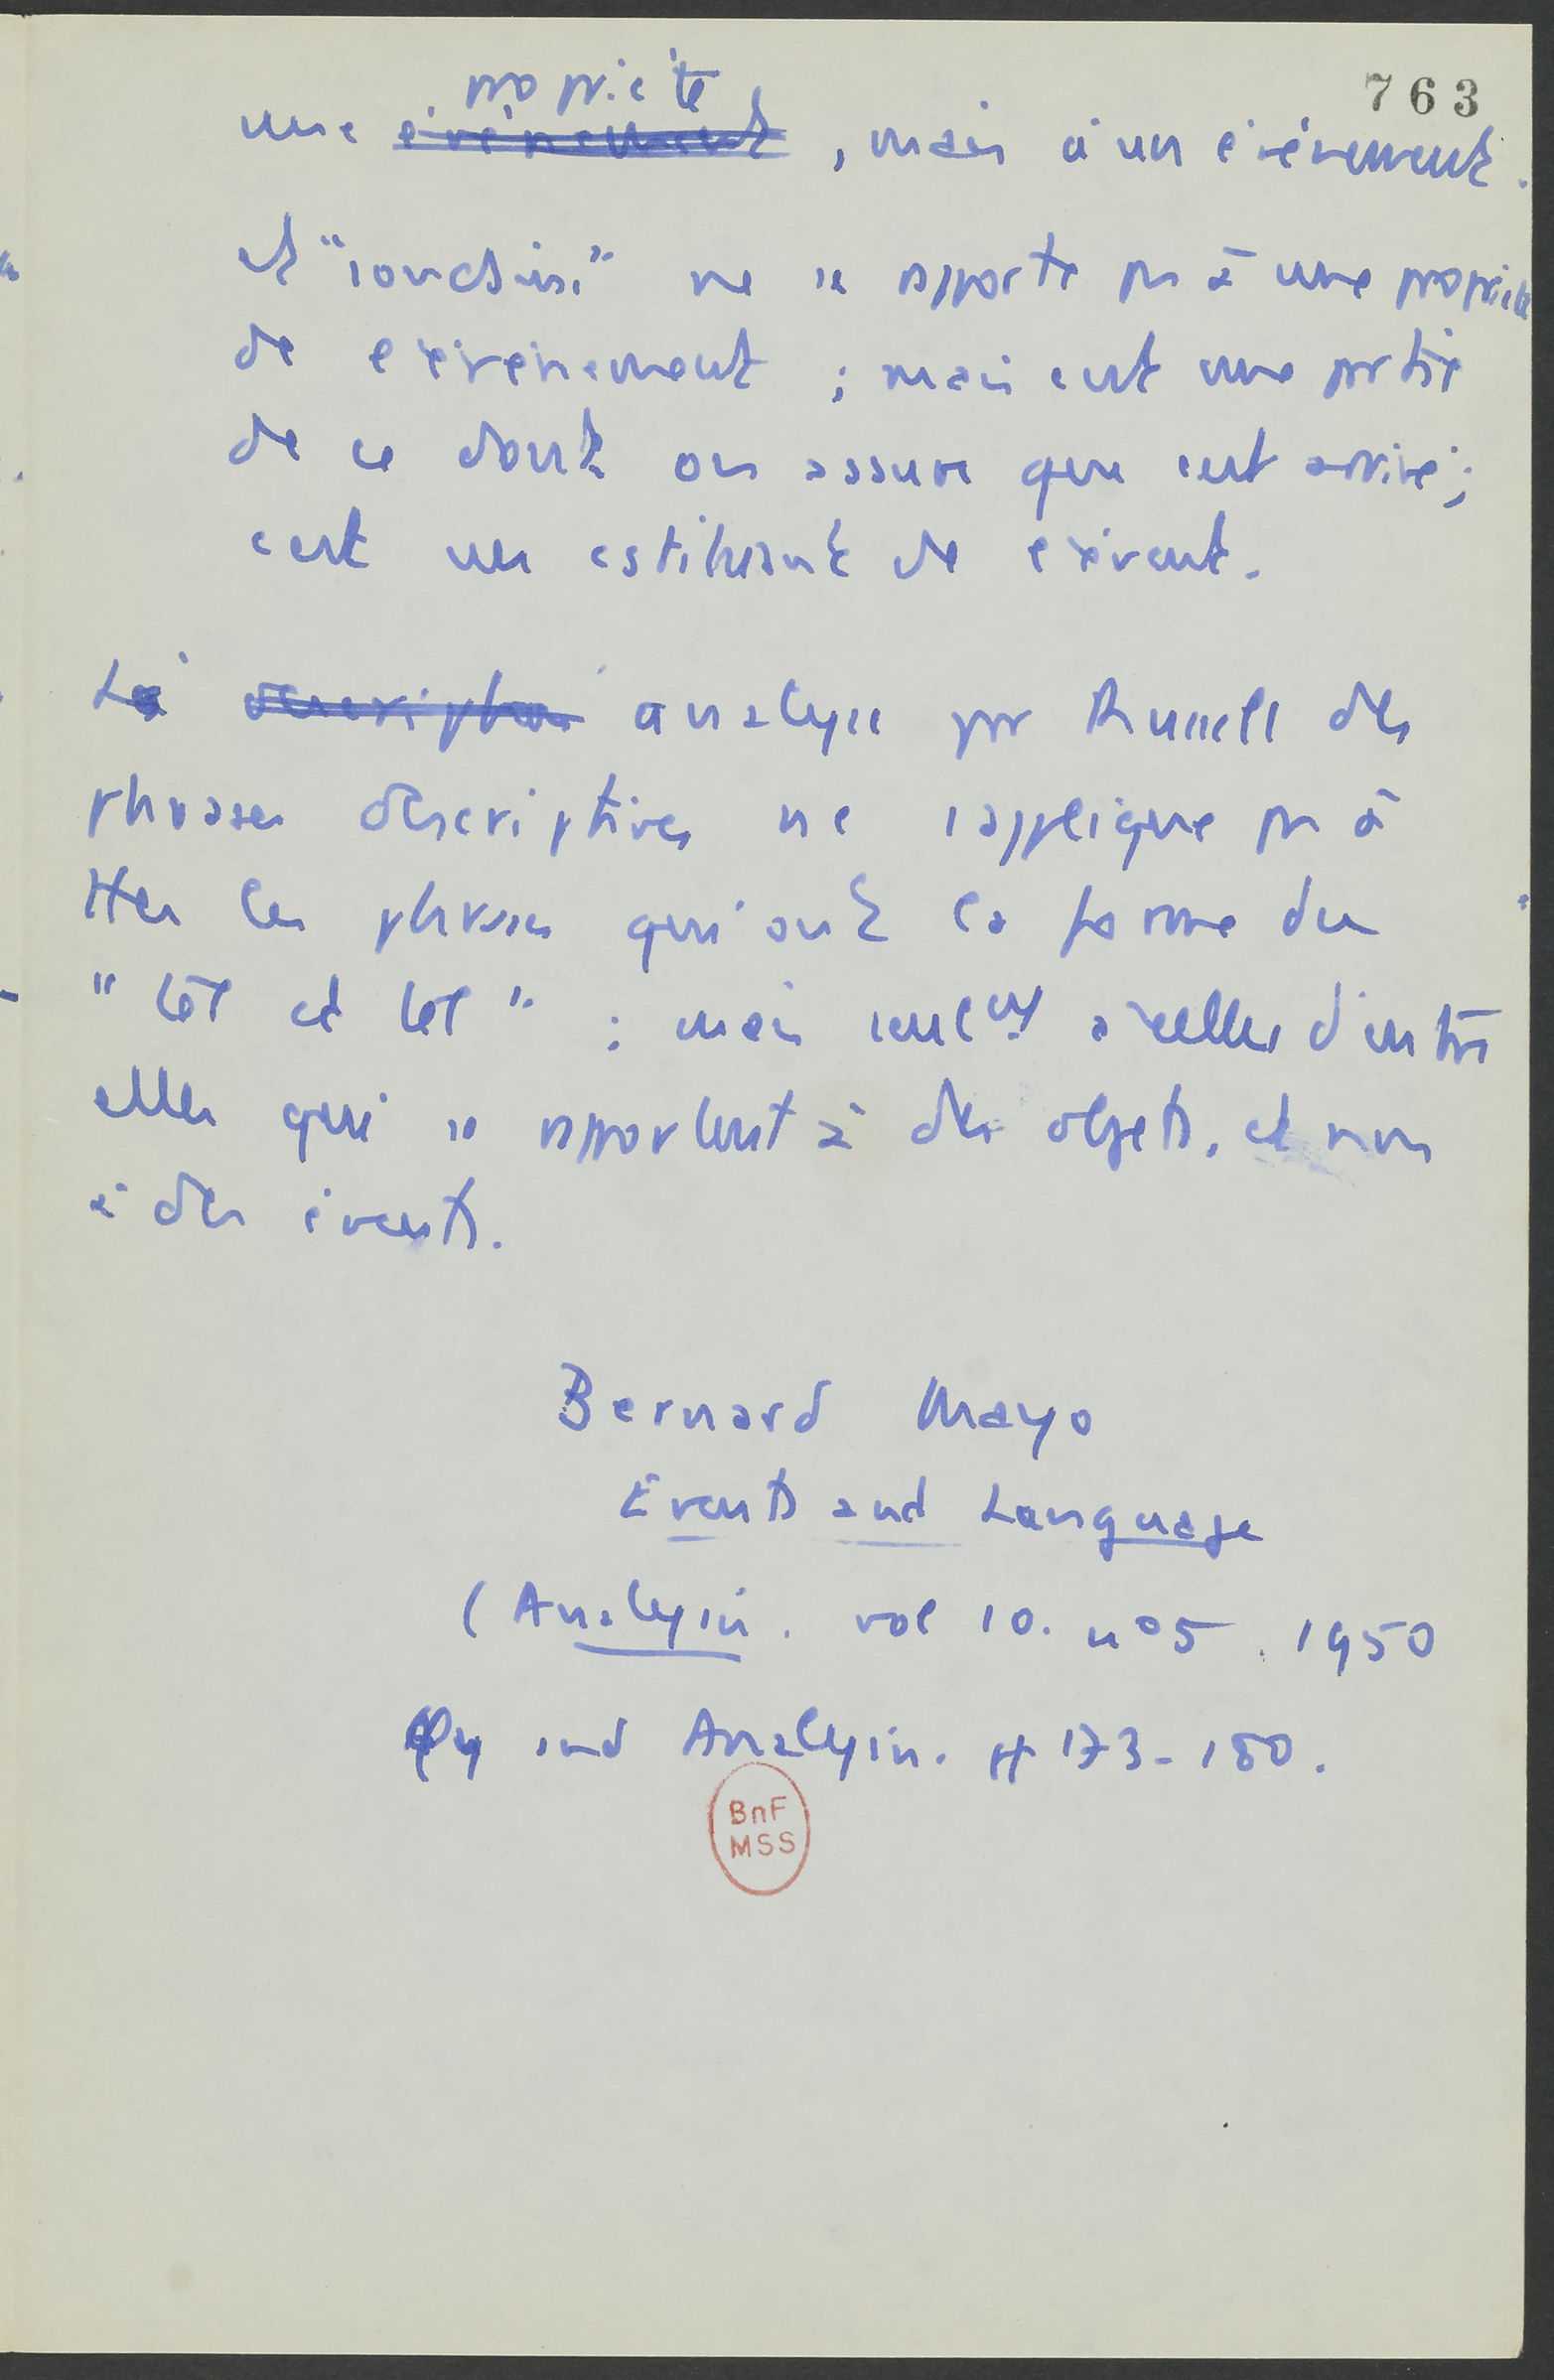 763
propriété
une événement, mais à un événement.
et "soudain" ne se rapporte pas à une propriété
de événement ; mais c'est une partie
de ce dont on assure que c'est arrivé ;
c'est un constituant de l'évent.
L' description analyse par Russell des
phrases descriptives ne s'applique pas à
ttes les phrases qui ont la forme du
"tel et tel" : mais seulemt à celles d'entre
elles qui se rapportent à des objets, et non
à des évents.
Bernard Mayo
Events and Language
(Analysis. vol 10. n°5. 1950
Φy and Analysis. pp 173-180.
BnF
MSS